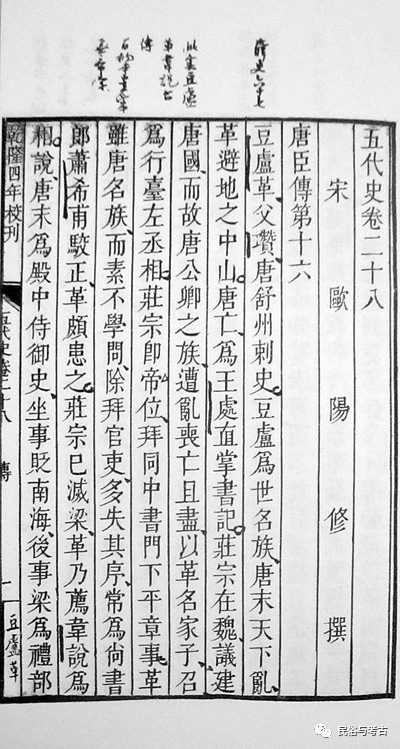 薛史六十七
五代史卷二十八
宋 歐陽修 撰
唐臣傳第十六
豆盧革父瓚唐舒州刺史豆盧爲世名族唐末天下亂
革避地之中山唐亡爲王處直掌書記莊宗在魏議建
唐國而故唐公卿之族遭亂喪亡且盡以革名家子召
爲行臺左丞相莊宗卽帝位拜同中書門下平章事革
雖唐名族而素不學問除拜官吏多失其序常爲尚書
郎蕭希甫駮正革頗患之莊宗已滅梁革乃薦韋說爲
相說唐末爲殿中侍御史坐事貶南海後事梁爲禮部
乾隆四年校刊
五代史卷二十八 傳
一
豆盧革
民俗与考古